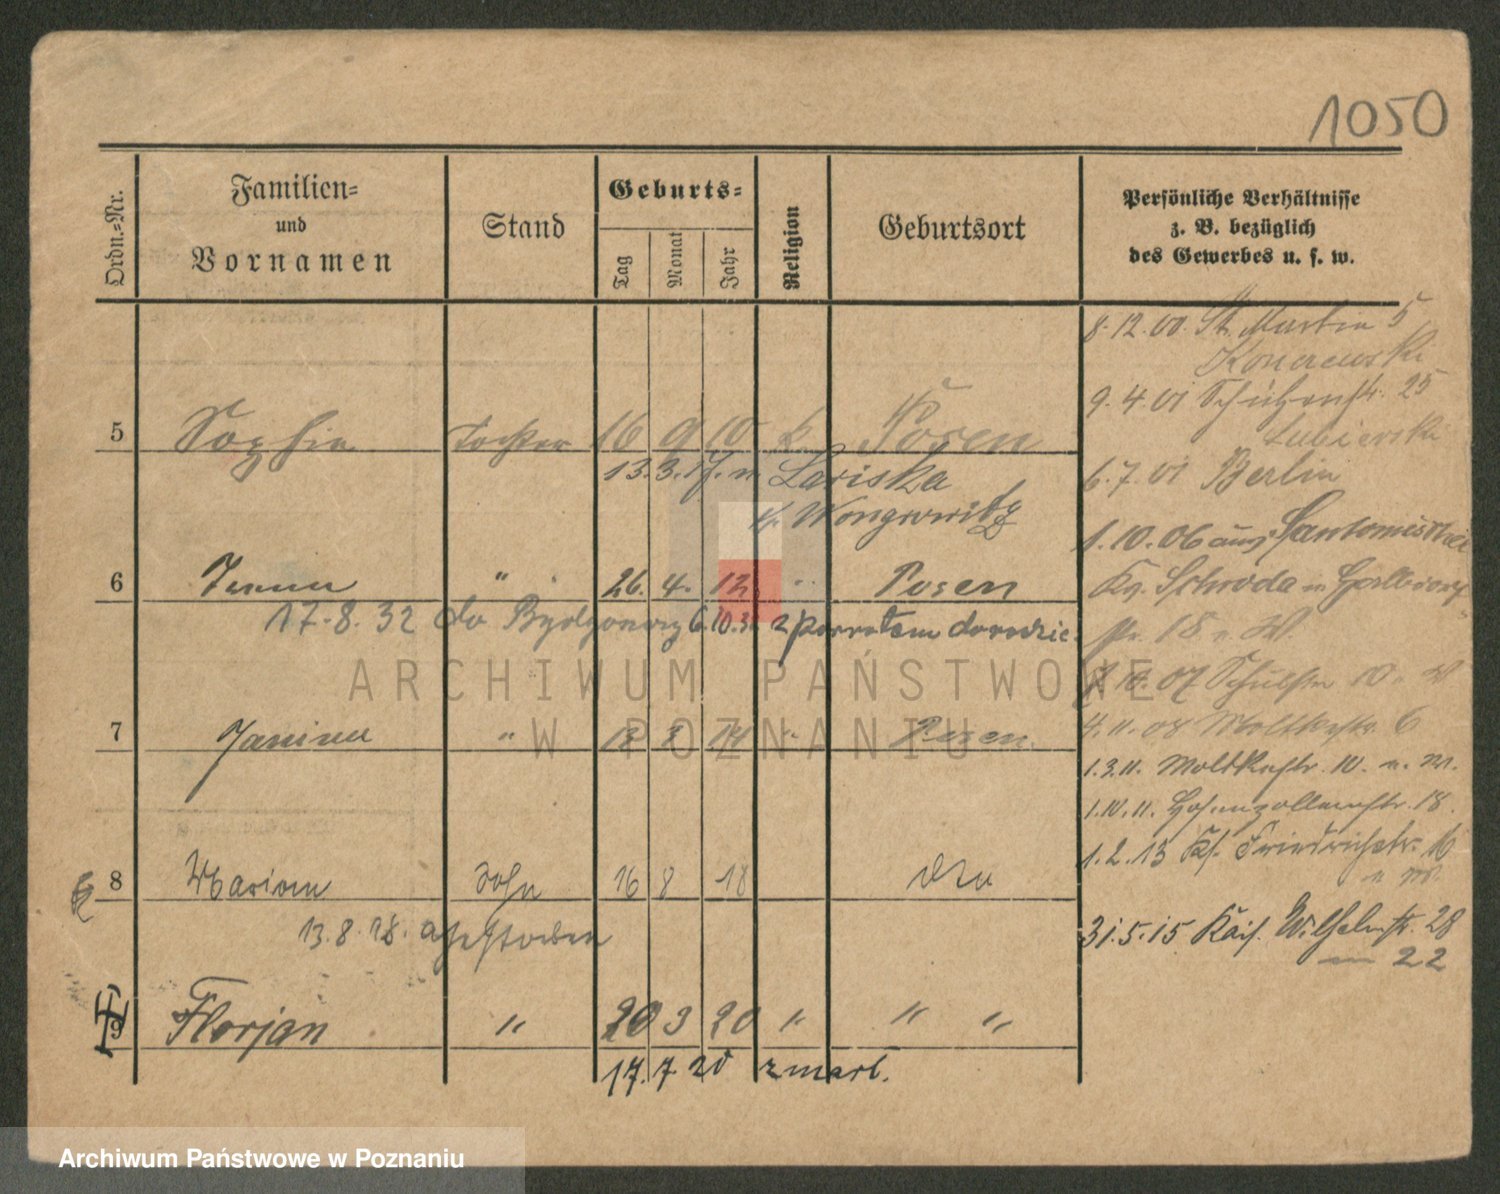 1050
Ordn.-Nr.
Familien-
und
Vornamen
Stand
Geburts-
Tag
Monat
Jahr
Religion
Geburtsort
Persönliche Verhältnisse
z. B. bezüglich
des Gewerbes u. s. w.
5 Sophie Tochter 16 9 10 k Posen
13.3.17. n. Lariska
Kr. Wongrowitz
6 Irena " 26. 4. 12 " Posen
17.8.32 do Bydgoszczy 6.10.32 z powrotem dorodzic.
7 Janina " 18 8 14 " Posen
8 Marian Sohn 16 8 18 dto
13.8.18. gestorben
9 Florjan " 20 3 20 " " "
17.7.20 zmarł.
8.12.00. St. Martin 5
9.4.01 Schützenstr. 25
6.7.01 Berlin
1.10.06 aus Santomischel
Kr. Schroda
18 n. W.
10.07 Schulstr 10 n. W
4.11.08 Moltkestr. 6
1.3.11. Moltkestr. 10. n. W.
1.10.11. Hohenzollernstr. 18.
1.2.13 Kf. Friedrichstr. 16
n W.
31.5.15 Kais. Wilhelmstr. 28
22
ARCHIWUM PAŃSTWOWE
W POZNANIU
Archiwum Państwowe w Poznaniu